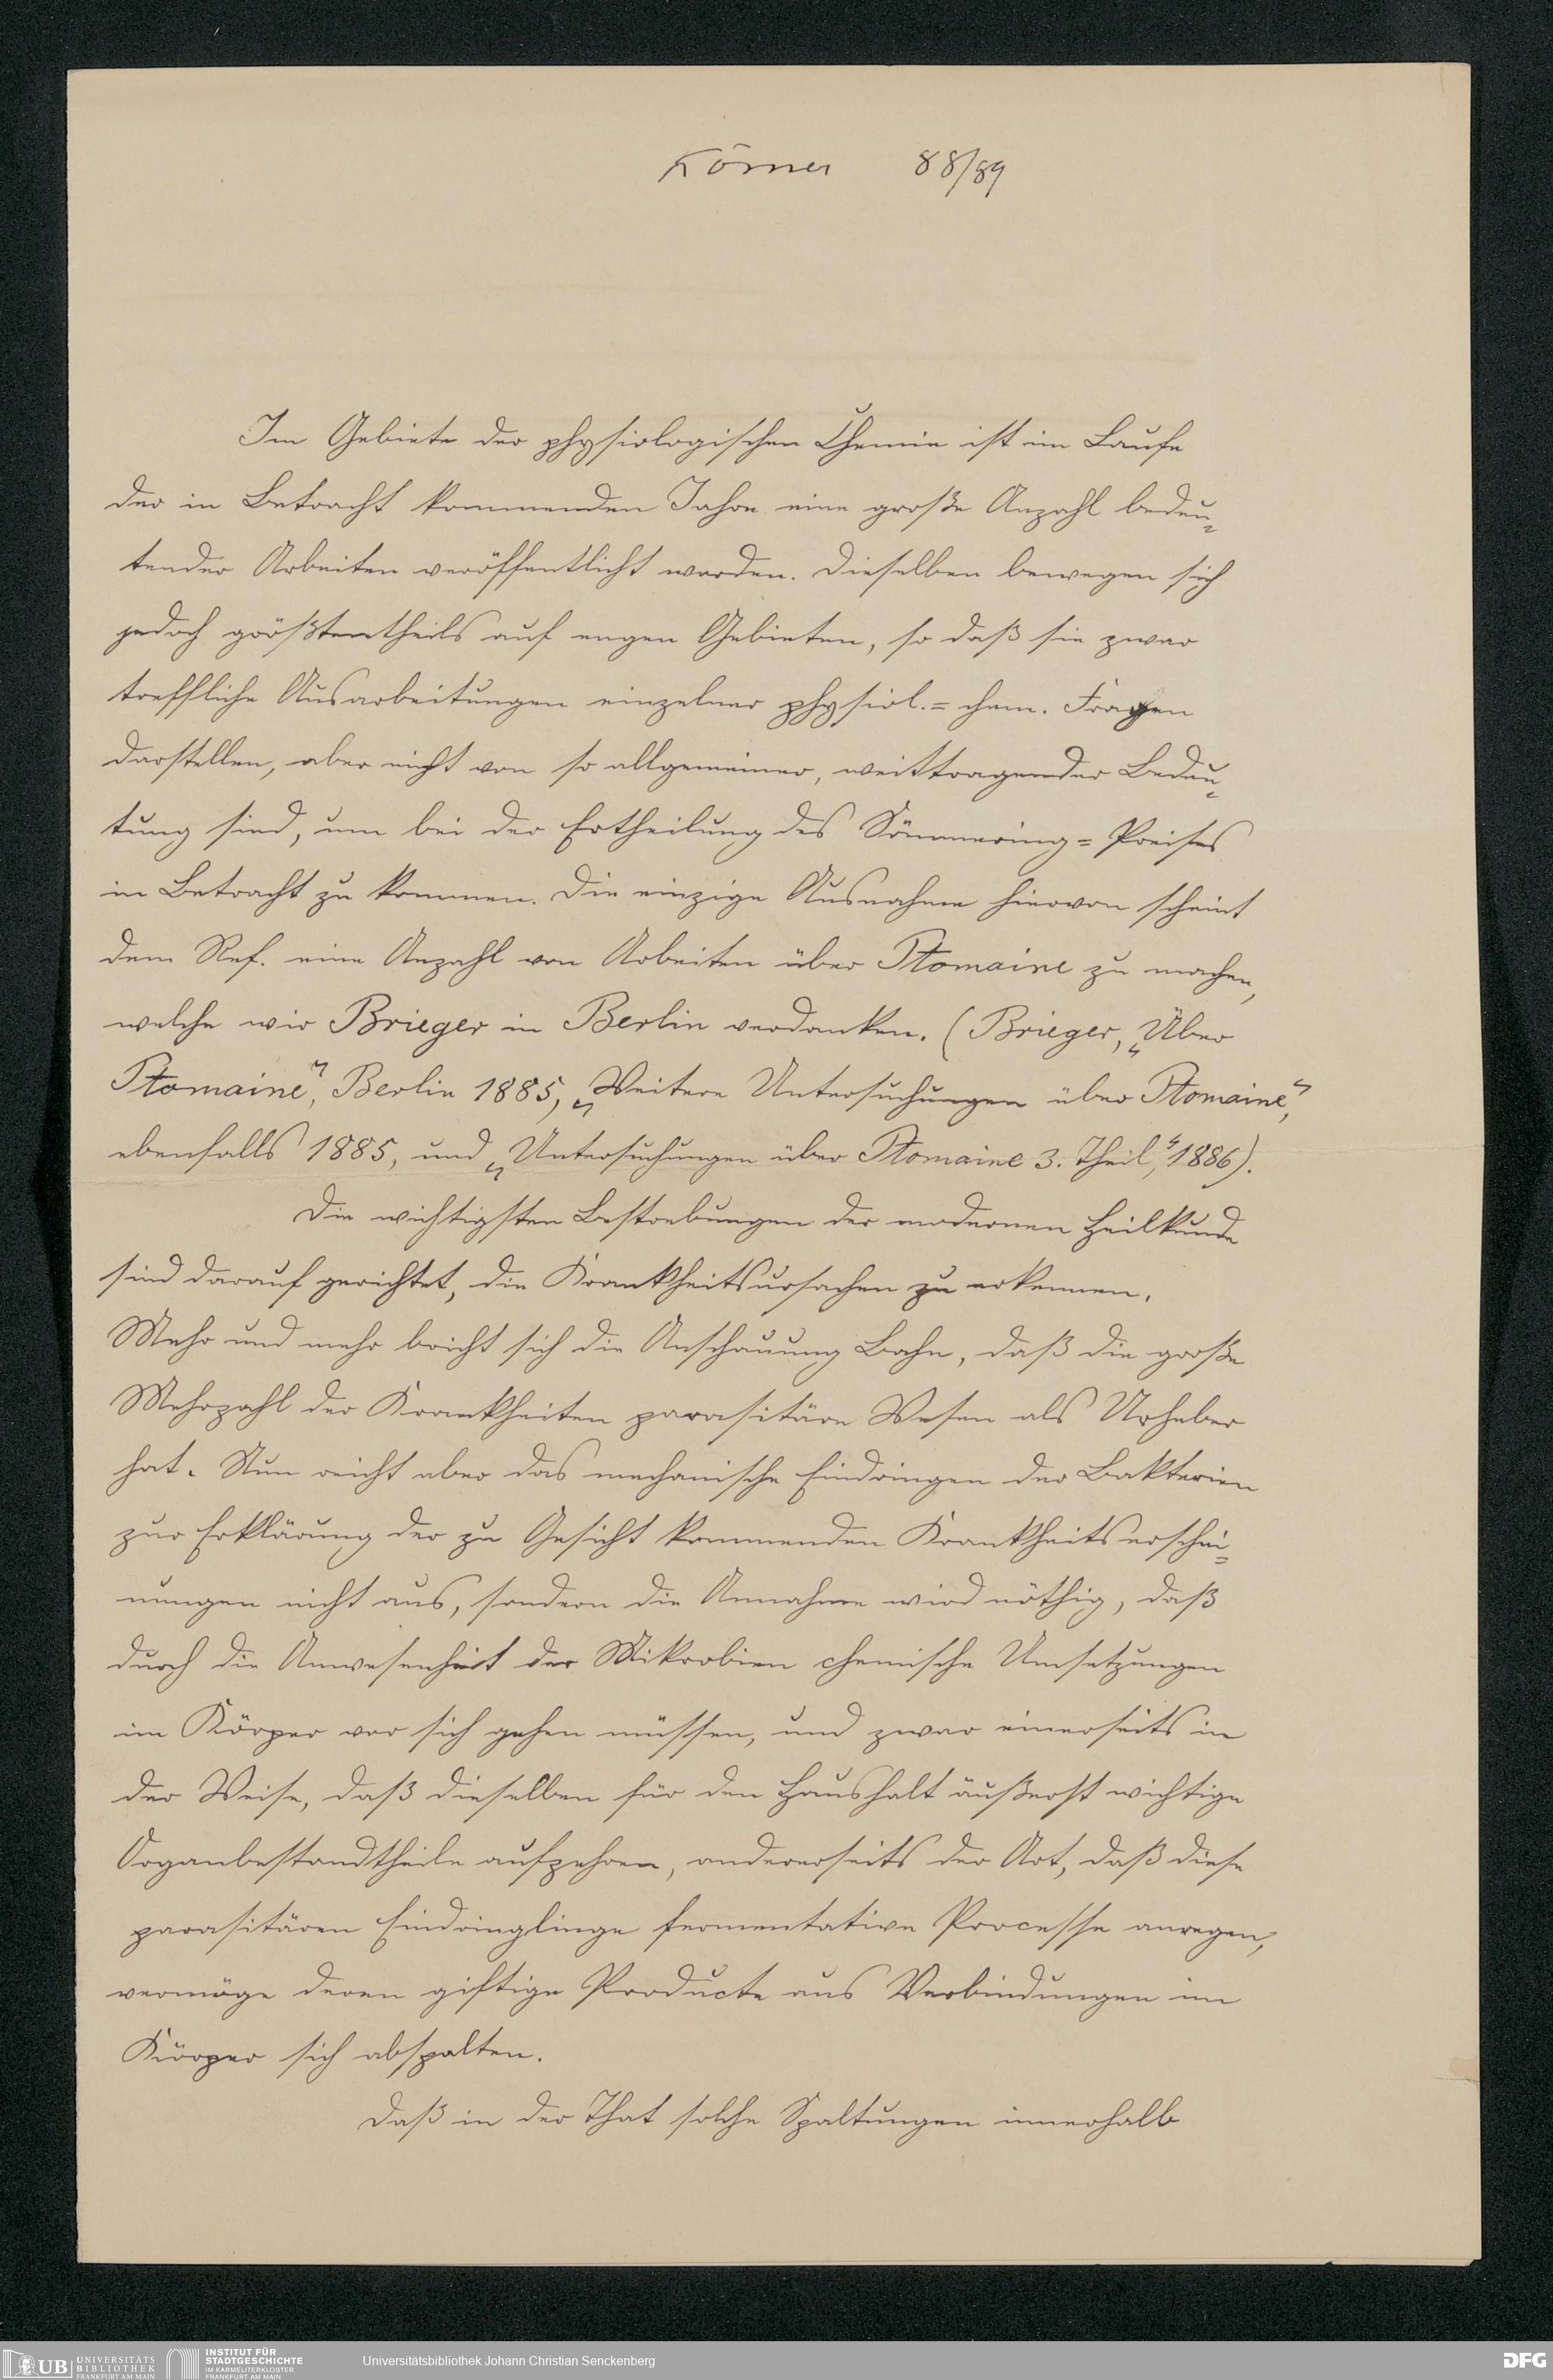 Körner 88/89
Im Gebiete der physiologischen Chemie ist im Laufe
der in Betracht kommenden Jahre eine große Anzahl bedeu-
tender Arbeiten veröffentlicht worden. Dieselben bewegen sich
jedoch größtentheils auf engen Gebieten, so daß sie zwar
treffliche Ausarbeitungen einzelner physiol.=chem. Fragen
darstellen, aber nicht von so allgemeiner, weittragender Bedeu-
tung sind, um bei der Ertheilung des Sömmering=Preises
in Betracht zu kommen. Die einzige Ausnahme hiervon scheint
dem Ref. eine Anzahl von Arbeiten über Ptomaine zu machen,
welche wir Brieger in Berlin verdanken. (Brieger, „Über
Ptomaine“, Berlin 1885, „Weitere Untersuchungen über Ptomaine“,
ebenfalls 1885, und „Untersuchungen über Ptomaine 3. Theil“, 1886).
Die wichtigsten Bestrebungen der modernen Heilkunde
sind darauf gerichtet, die Krankheitsursachen zu erkennen.
Mehr und mehr bricht sich die Anschauung Bahn, daß die große
Mehrzahl der Krankheiten parasitäre Wesen als Urheber
hat. Nun reicht aber das mechanische Eindringen der Bakterien
zur Erklärung der zu Gesicht kommenden Krankheitserschei-
nungen nicht aus, sondern die Annahme wird nöthig, daß
durch die Anwesenheit der Mikrobien chemische Umsetzungen
im Körper vor sich gehen müssen, und zwar einerseits in
der Weise, daß dieselben für den Haushalt äußerst wichtige
Organbestandtheile aufzehren, andererseits der Art, daß diese
parasitären Eindringlinge fermentative Processe anregen,
vermöge deren giftige Producte aus Verbindungen im
Körper sich abspalten.
Daß in der That solche Spaltungen innerhalb
UB UNIVERSITÄTS BIBLIOTHEK FRANKFURT AM MAIN
INSTITUT FÜR STADTGESCHICHTE IM KARMELITERKLOSTER FRANKFURT AM MAIN
Universitätsbibliothek Johann Christian Senckenberg
DFG